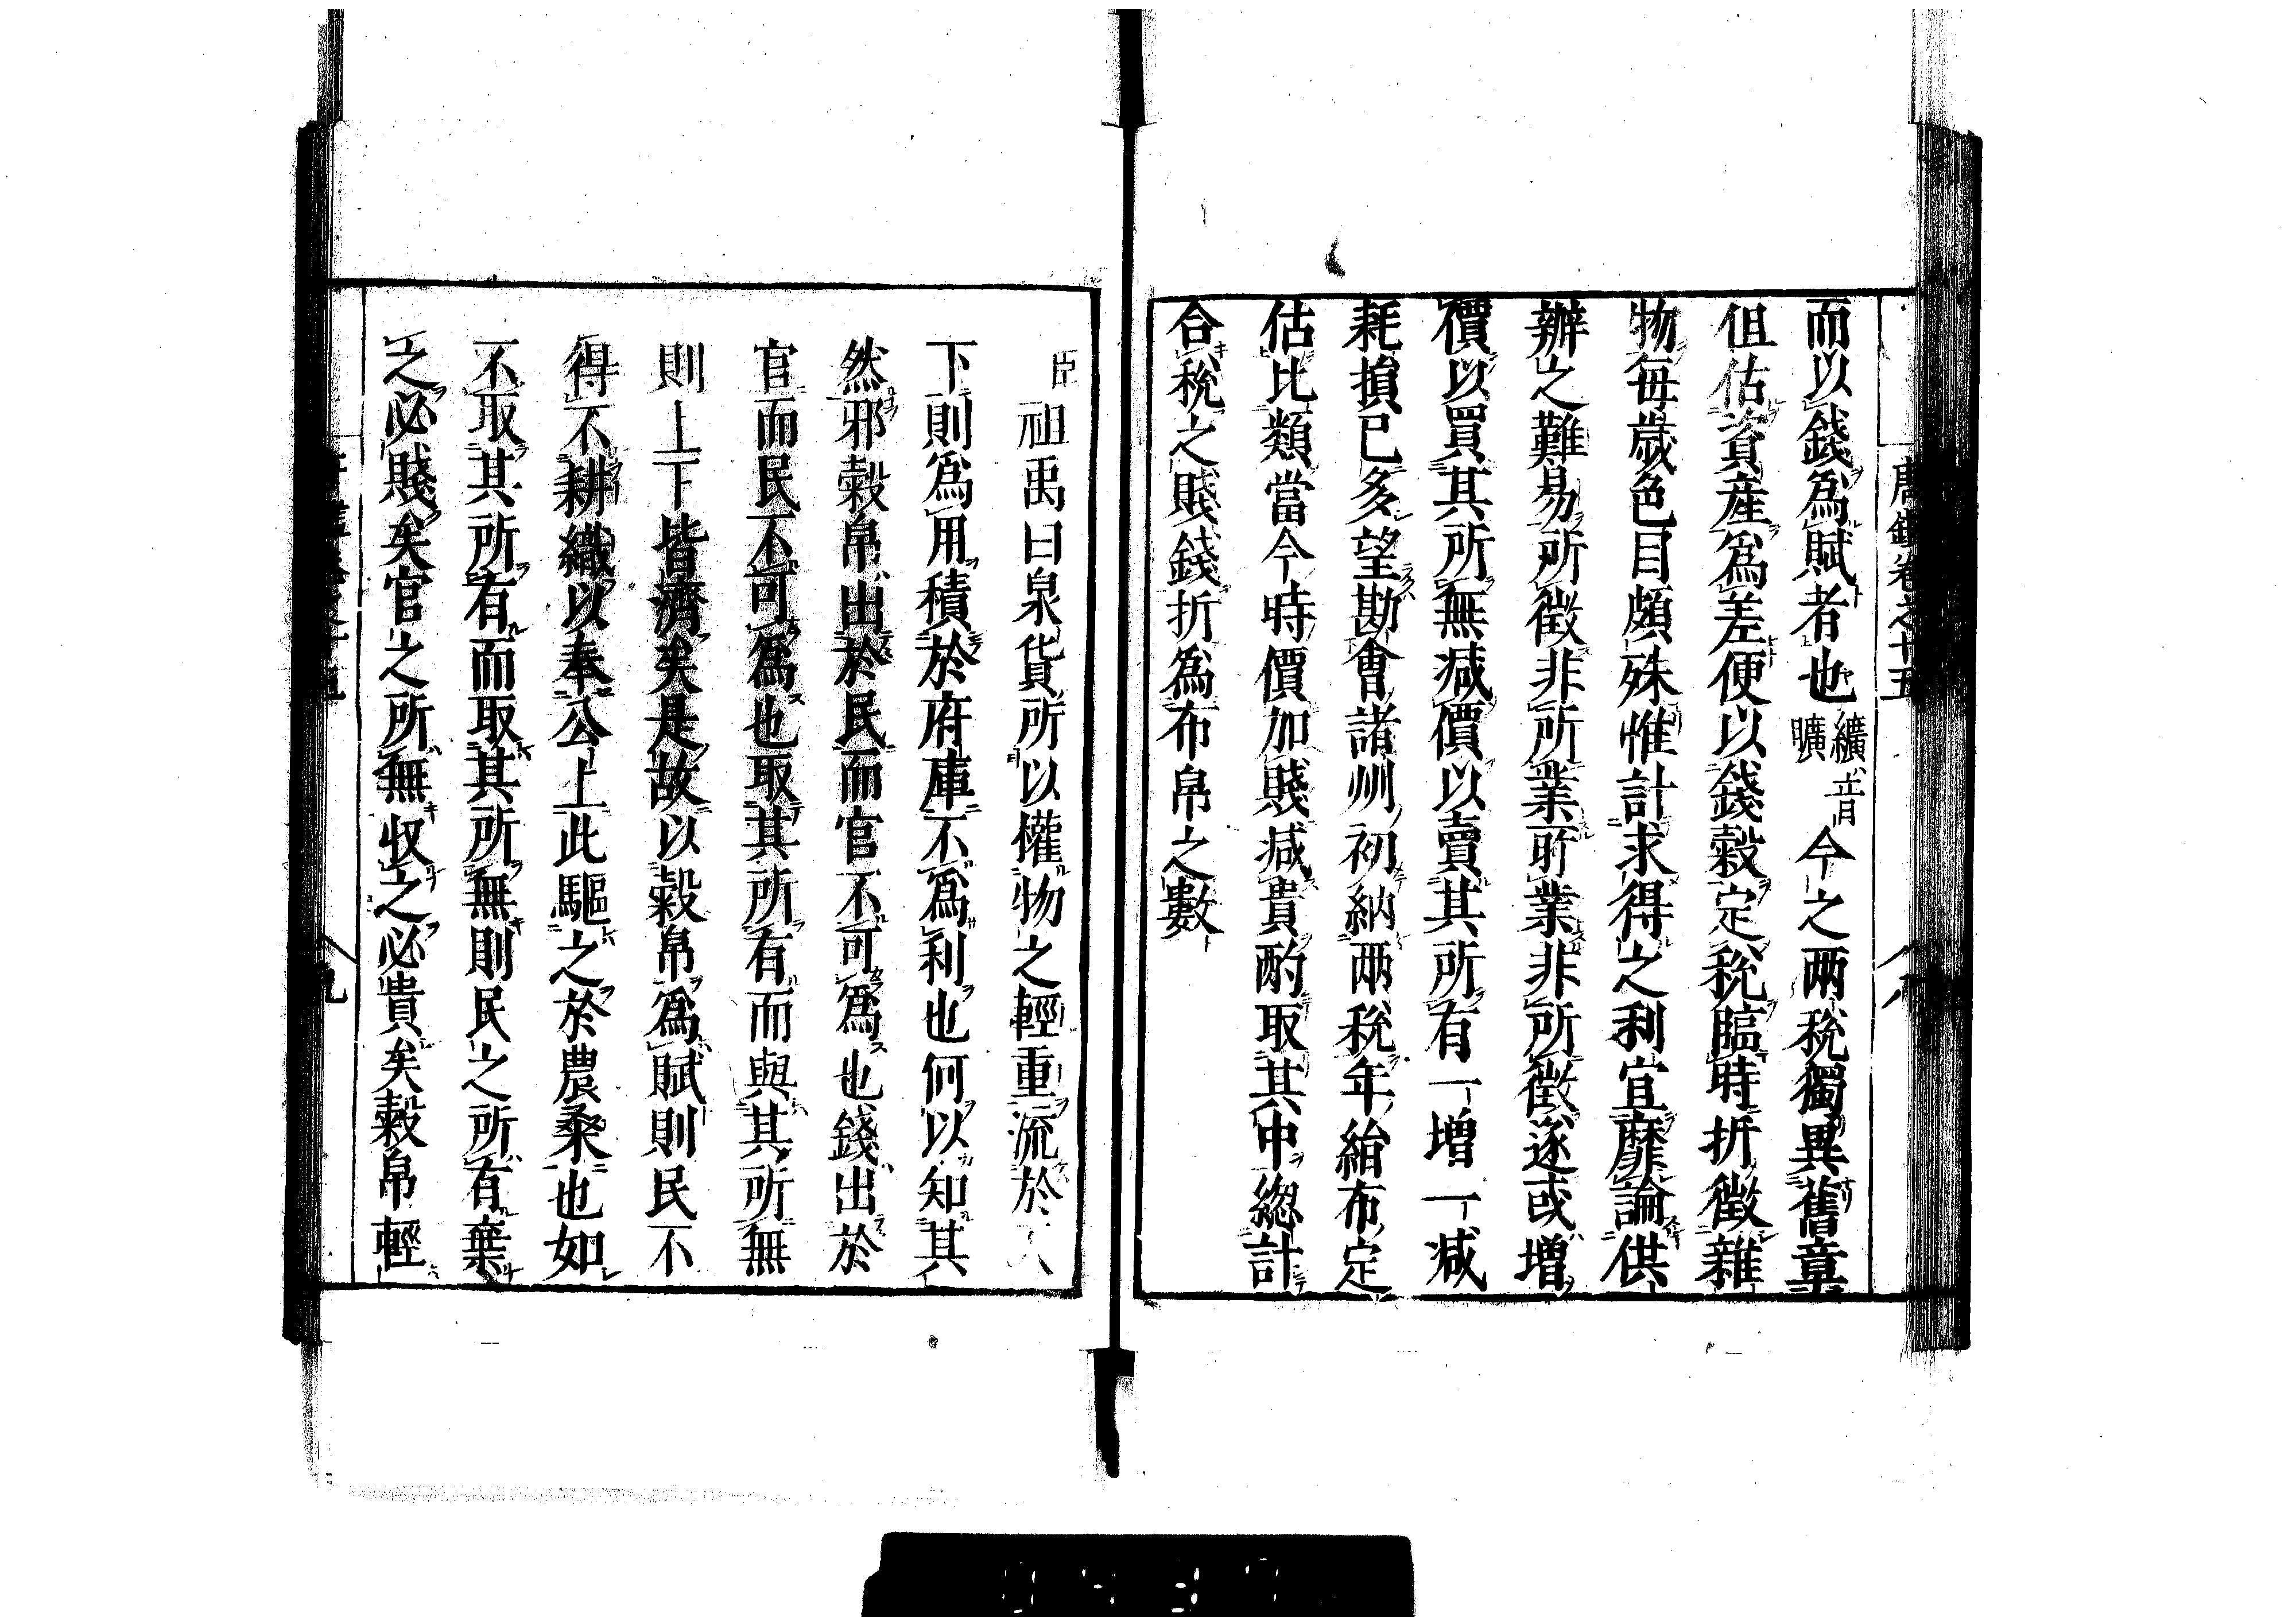 唐鑑卷之十五
而以錢爲賦者也纊音曠今之兩稅獨異舊章
但估資産爲差便以錢穀定稅臨時折徵雜
物毎歲色目頗殊惟計求得之利宜靡論供
辦之難易所徵非所業所業非所徵遂或增
價以買其所無減價以賣其所有一增一減
耗損已多望勘會諸州初納兩稅年絹布定
估比類當今時價加賤減貴酌取其中總計
合稅之賤錢折爲布帛之數
臣祖禹曰泉貨所以權物之輕重流於
下則爲用積於府庫不爲利也何以知其
然邪穀帛出於民而官不可爲也錢出於
官而民不可爲也取其所有而與其所無
則上下皆濟矣是故以穀帛爲賦則民不
得不耕織以奉公上此驅之於農桑也如
不取其所有而取其所無則民之所有棄
之必賤矣官之所無収之必貴矣穀帛輕